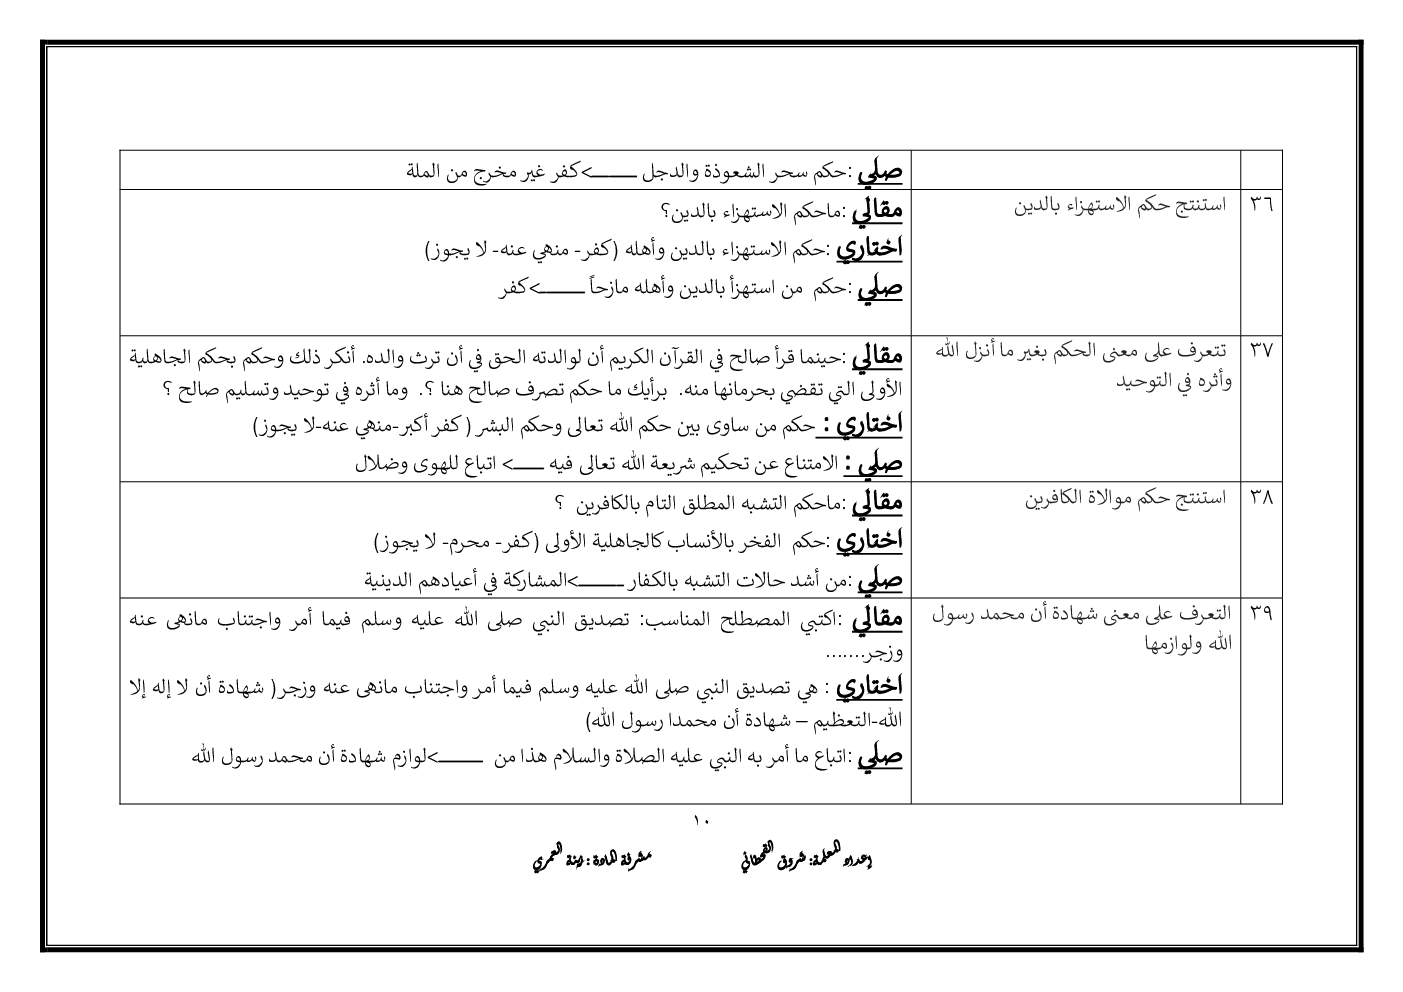 صلي :حكم سحر الشعوذة والدجل ـــــــــ>كفر غير مخرج من الملة
٣٦
استنتج حكم الاستهزاء بالدين
مقالي :ماحكم الاستهزاء بالدين؟
اختاري :حكم الاستهزاء بالدين وأهله (كفر- منهي عنه- لا يجوز)
صلي :حكم من استهزأ بالدين وأهله مازحاً ـــــــــ>كفر
٣٧
تتعرف على معنى الحكم بغير ما أنزل الله
وأثره في التوحيد
مقالي :حينما قرأ صالح في القرآن الكريم أن لوالدته الحق في أن ترث والده. أنكر ذلك وحكم بحكم الجاهلية
الأولى التي تقضي بحرمانها منه. برأيك ما حكم تصرف صالح هنا ؟. وما أثره في توحيد وتسليم صالح ؟
اختاري : حكم من ساوى بين حكم الله تعالى وحكم البشر ( كفر أكبر-منهي عنه-لا يجوز)
صلي : الامتناع عن تحكيم شريعة الله تعالى فيه ــــــ> اتباع للهوى وضلال
٣٨
استنتج حكم موالاة الكافرين
مقالي :ماحكم التشبه المطلق التام بالكافرين ؟
اختاري :حكم الفخر بالأنساب كالجاهلية الأولى (كفر- محرم- لا يجوز)
صلي :من أشد حالات التشبه بالكفار ـــــــــ>المشاركة في أعيادهم الدينية
٣٩
التعرف على معنى شهادة أن محمد رسول
الله ولوازمها
مقالي :اكتبي المصطلح المناسب: تصديق النبي صلى الله عليه وسلم فيما أمر واجتناب مانهى عنه
وزجر.......
اختاري : هي تصديق النبي صلى الله عليه وسلم فيما أمر واجتناب مانهى عنه وزجر( شهادة أن لا إله إلا
الله-التعظيم – شهادة أن محمدا رسول الله)
صلي :اتباع ما أمر به النبي عليه الصلاة والسلام هذا من ـــــــــ>لوازم شهادة أن محمد رسول الله
١٠
إعداد المعلمة: شروق القحطاني مشرفة المادة : نبيلة العمري